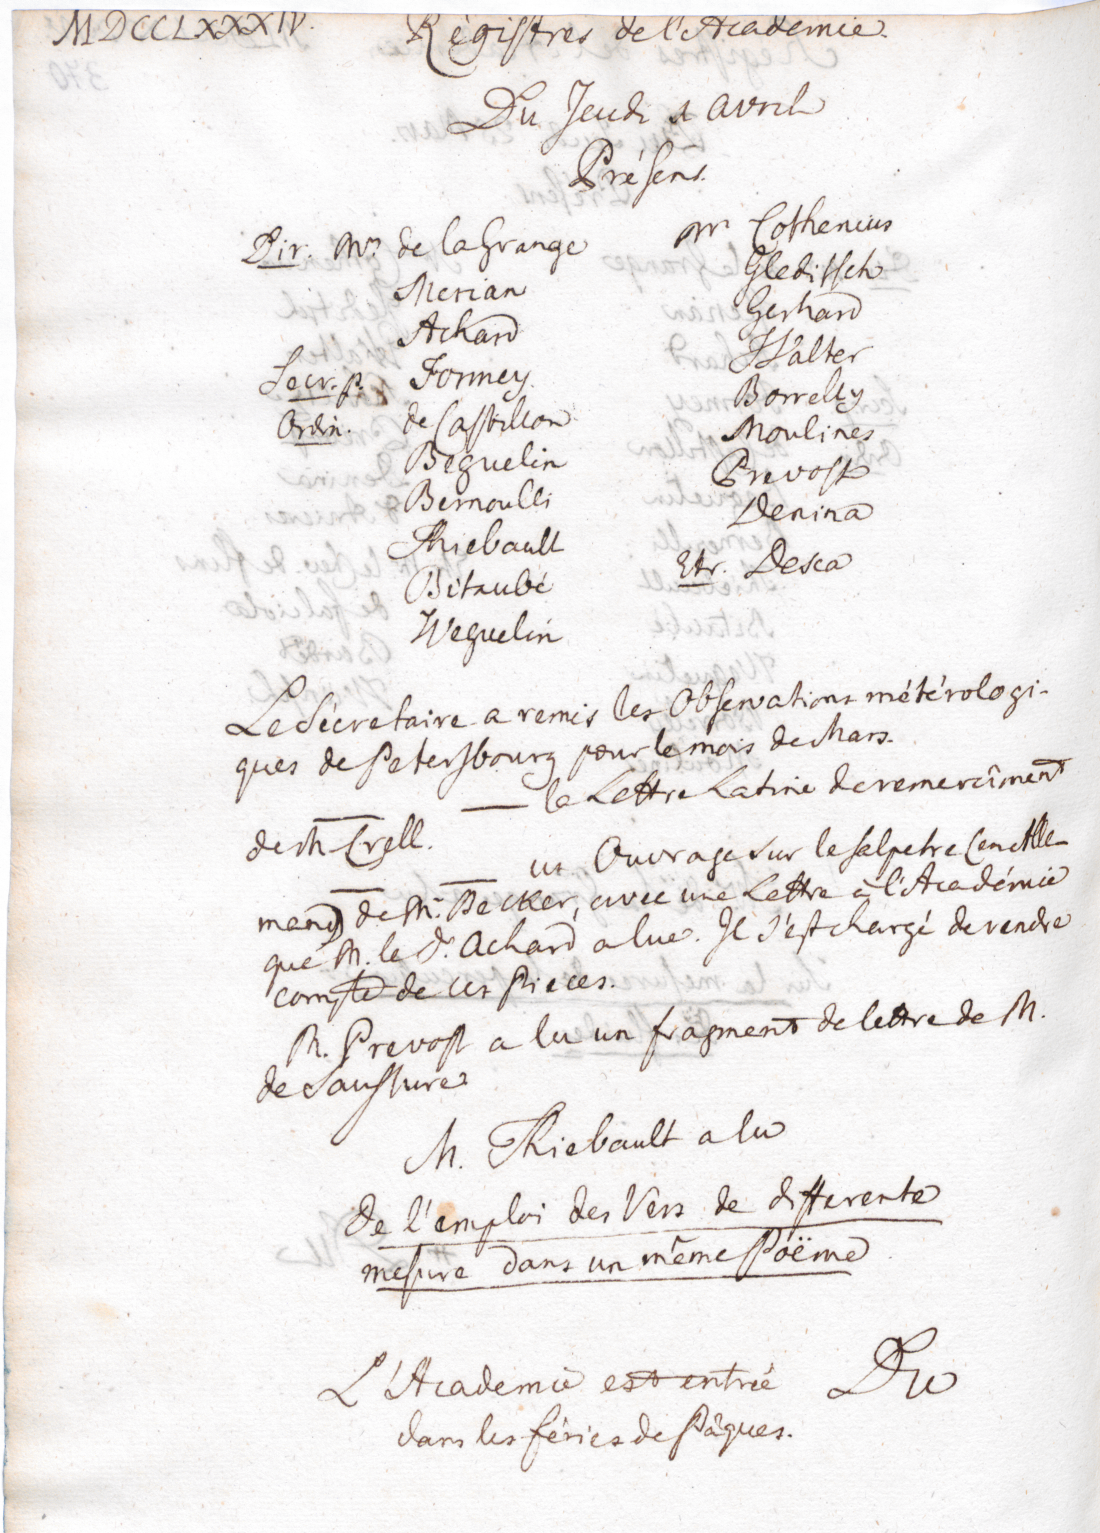 MDCCLXXXIV. Régistres de l'Academie.
Du Jeudi 1 Avril
Présens.
Dir. Mrs de la Grange
Merian
Achard
Secr. p. Formey.
Ordin. de Castillon
Beguelin
Bernoulli
Thiebault
Bitaubé
Weguelin
Mrs Cothenius
Gleditsch
Gerhard
Walter
Borrelly
Moulines
Prevost
Denina
Etr. Desca
Le Sécretaire a remis les Observations météorologi-
ques de Petersbourg pour le mois de Mars.
— la Lettre Latine de remercîment
de M. Crell.
— — un Ouvrage sur le salpetre (en Alle-
mand) de Mr. Becker, avec une Lettre à l'Académie
que M. le Dr. Achard a lue. Il s'est chargé de rendre
compte de ces Pieces.
M. Prevost a lu un fragment de lettre de M.
de Saussure
M. Thiebault a lu
de l'emploi des Vers de differente
mesure dans un même Poëme
L'Academie est entrée Du
dans les féries de Pâques.